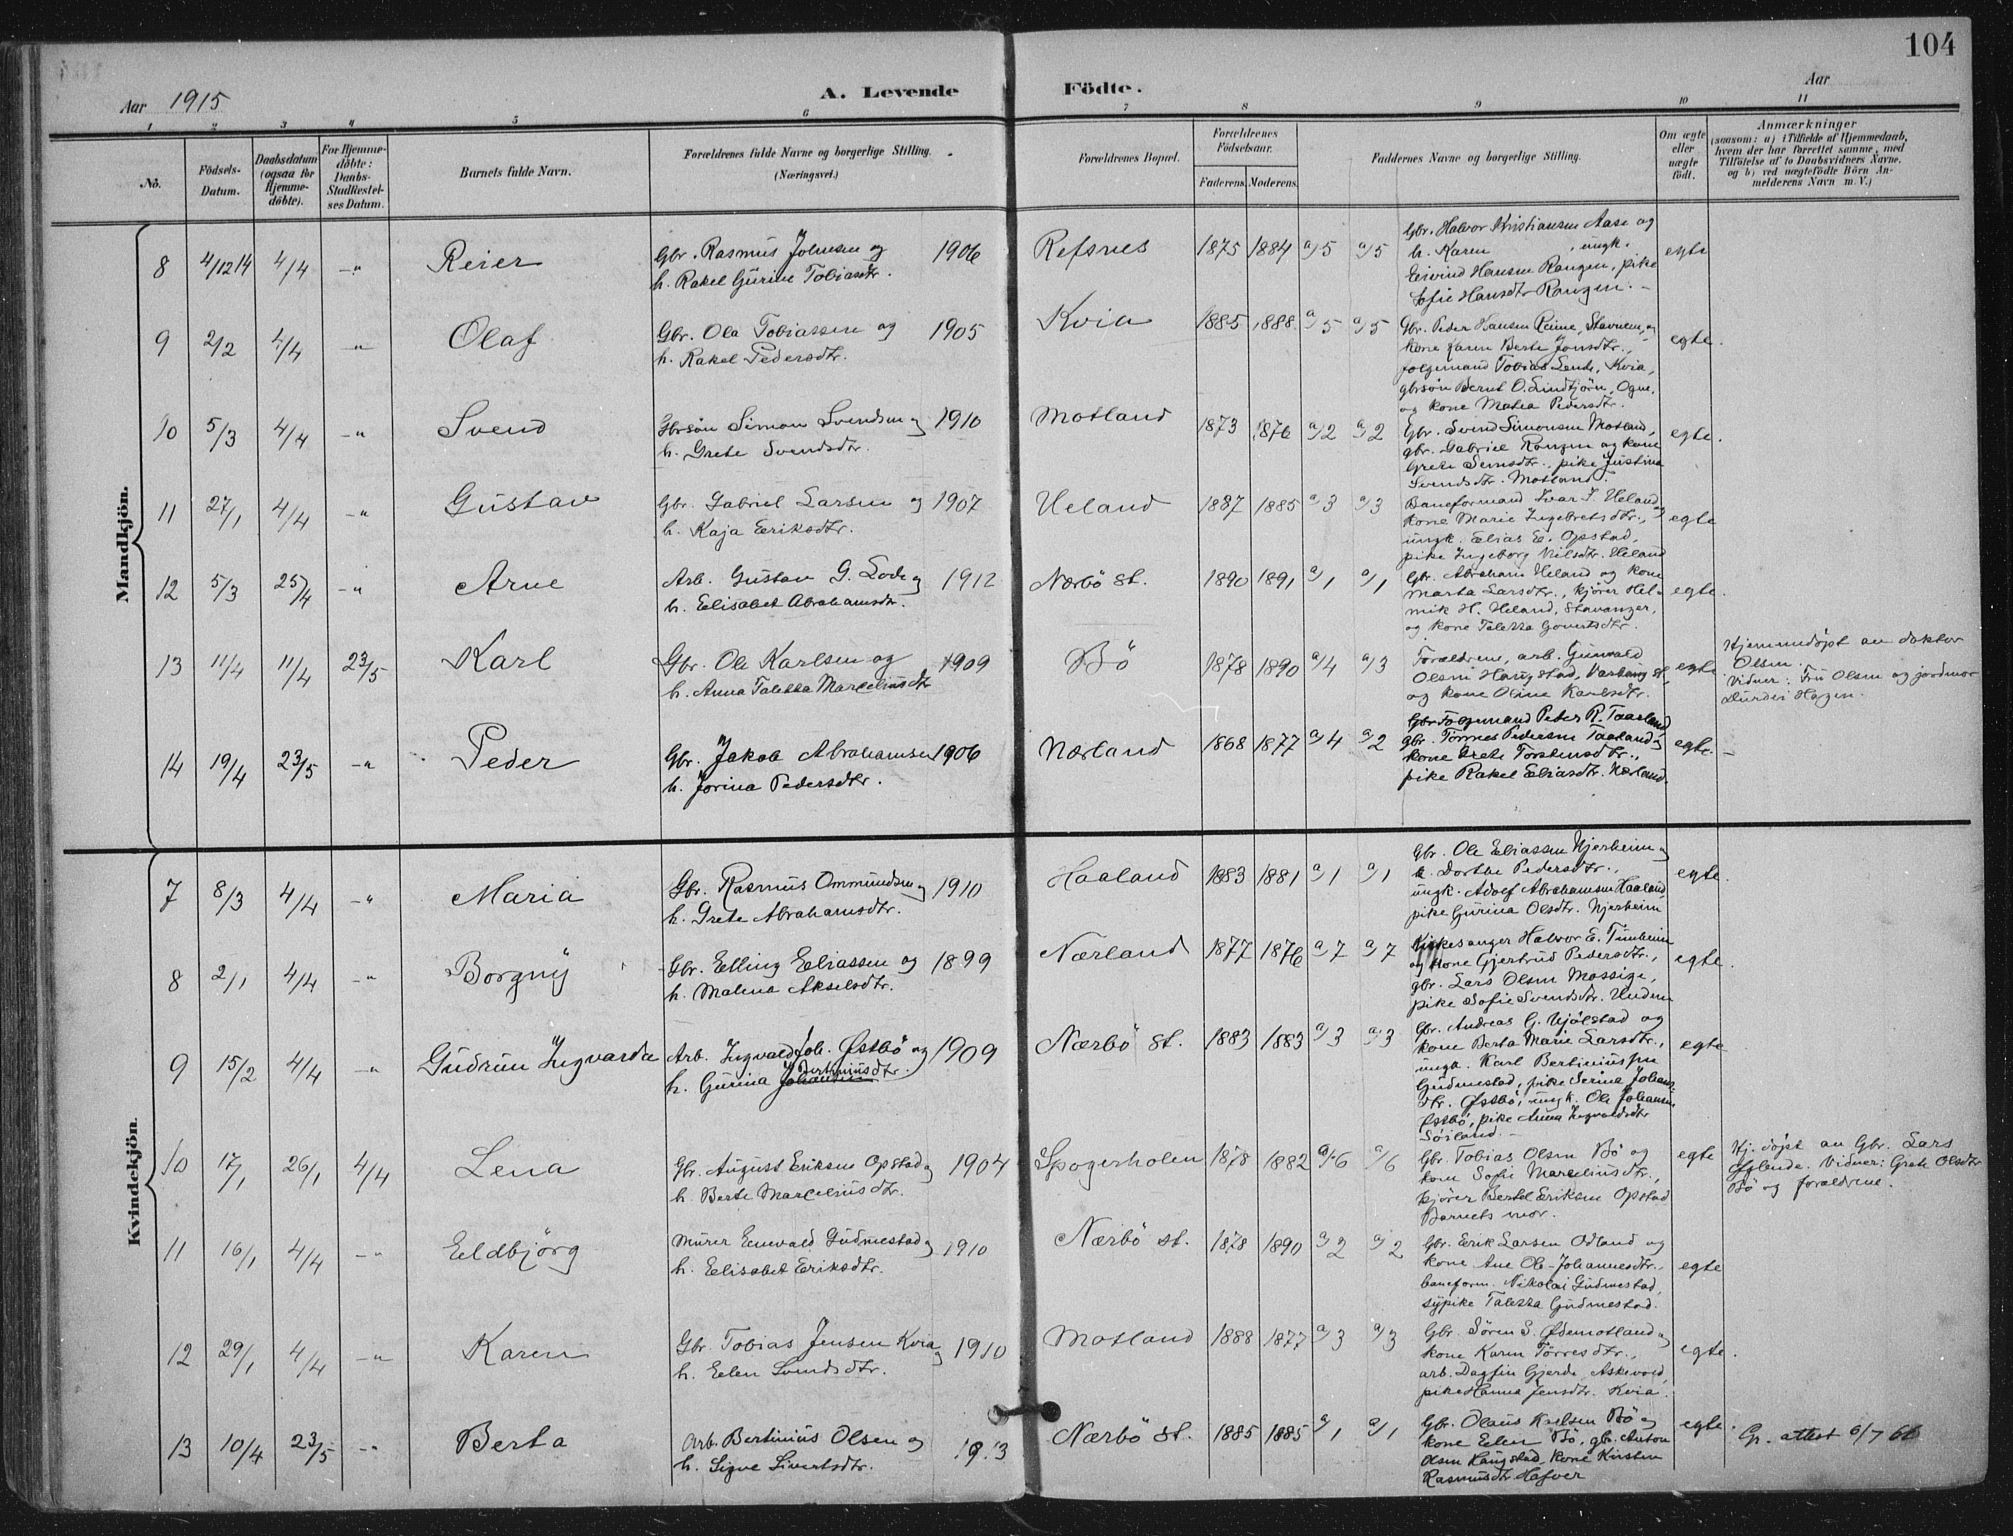 104
Aar 1915
A. Levende Födte.
Aar
1 2 3 4 5 6 7 8 9 10 11
No.
Födsels-
Datum.
Daabsdatum
(ogsaa for
Hjemme-
döbte).
For Hjemme-
döbte:
Daabs-
Stadfæstel-
ses Datum.
Barnets fulde Navn.
Forældrenes fulde Navne og borgerlige Stilling.
(Næringsvei.)
Forældrenes Bopæl.
Forældrenes
Födselsaar.
Faderens. Moderens.
Faddernes Navne og borgerlige Stilling.
Om ægte
eller
uægte
födt.
Anmærkninger
(saasom: a) i Tilfælde af Hjemmedaab,
hvem der har forrettet samme, med
Tilföielse af to Daabsvidners Navne,
og b) ved uægtefödte Börn An-
melderens Navn m. V.)
Mandkjön.
8 4/12 14 4/4 -"- Reier
Gbr. Rasmus Johnsen og 1906
h. Rakel Gurine Tobiasdtr.
Refsnes 1875 1884 a/5 a/5
Gbr. Halvor Kristiansen Aase og
h. Karen , ungk.
Eivind Hansen Rangen, pike
Sofie Hansdtr Rangen. -
egte
9 2/2 4/4 -"- Olaf
Gbr. Ola Tobiassen og 1905
h. Rakel Pedersdtr.
Kvia 1885 1888 a/5 a/5
Gbr. Peder Hansen Reime, Stavnem, og
kone Karen Berte Jonsdtr.,
folgemand Tobias Lende, Kvia,
gbrsön Bernt O. Lindtjörn, Ogne,
og kone Matea Pedersdtr.
egte.
10 5/3 4/4 -"- Svend
Gbrsön Simon Svendsen og 1910
h. Grete Svendsdtr.
Motland 1873 1876 a/2 a/2
Gbr. Svend Simonsen Motland,
gbr. Gabriel Rangen og kone
Grete Simsdtr., pike Justina
Svendsdtr. Motland.
egte.
11 27/1 4/4 -"- Gustav
Gbr. Gabriel Larsen og 1907
h. Kaja Eriksdtr.
Ueland 1887 1885 a/3 a/3
Baneformand Ivar T. Ueland og
kone Marie Ingebretsdtr.,
ungk. Elias E. Opstad,
pike Ingeborg Nilsdtr. Ueland
egte
12 5/3 25/4 -"- Arne
Arb. Gustav G. Lode og 1912
h. Elisabet Abrahamsdtr.
Nærbö St. 1890 1891 a/1 a/1
Gbr. Abraham Ueland og kone
Marta Larsdtr., kjörer Hel-
mik H. Ueland, Stavanger,
og kone Taletta Govertsdtr.
egte.
13 11/4 11/4 23/5 Karl
Gbr. Ole Karlsen og 1909
h. Anna Taletta Marceliusdtr
Bö 1878 1890 a/4 a/3
Forældrene, arb. Gunvald
Olsen Haugstad, Varhaug st.,
og kone Oline Karlsdtr.
egte
Hjemmedöpt av doktor
Olsen.
Vidner: Fru Olsen og jordmor
Durdei Hagen.
14 19/4 23/5 -"- Peder
Gbr. Jakob Abrahamsen 1906
h. Jorina Pedersdtr.
Nærland 1868 1877 a/4 a/2
Gbr Folgemand Peder R. Taarland,
gbr. Tönnes Pedersen Taarland og
kone Grete Torstensdtr.,
pike Rakel Eliasdtr. Nærland.
egte. -
Kvindekjön.
7 8/3 4/4 -"- Maria
Gbr. Rasmus Ommundsen og 1910
h. Grete Abrahamsdtr.
Haaland 1883 1881 a/1 a/1
Gbr. Ole Eliassen Njerheim og
h. Dorthe Pedersdtr.,
ungk. Adolf Abrahamsen Haaland,
pike Gurina Olsdtr. Njerheim
egte.
8 2/1 4/4 -"- Borgny
Gbr. Elling Eliassen og 1899
h. Malena Akselsdtr.
Nærland 1877 1876 a/7 a/7
Kirkesanger Halvor E. Tunheim
og kone Gjertrud Pedersdtr.,
gbr. Lars Olsen Mossige,
pike Sofie Svendsdtr.
egte.
9 15/2 4/4 -"- Gudrun Ingvarda
Arb. Ingvald Joh. Østbö og 1909
Bertiniusdtr.
h. Gurina Johansen
Nærbö St. 1883 1883 a/3 a/3
Gbr. Andreas G. Njölstad og
kone Berta Marie Larsdtr.,
ungk. Karl Bertiniussen
Gudmestad, pike Serine Johans-
dtr. Østbö, ungk. Ole Johansen
Østbö, pike Anna Ingvaldsdtr
Söiland. -
egte
10 17/1 26/1 4/4 Lena
Gbr. August Eriksen Opstad og 1904
h. Berte Marceliusdtr.
Spogerholen 1878 1882 a/6 a/6
Gbr. Tobias Olsen Bö og
kone Sofie Marceliusdtr.,
kjörer Bertel Eriksen Opstad
Barnets mor.
egte
Hj. döpt av Gbr. Lars
Vidner: Grete Olsdtr
Bö og forældrene.
11 16/1 4/4 -"- Eldbjörg
Murer Enevald Gudmestad og 1910
h. Elisabet Eriksdtr.
Nærbö st. 1878 1890 a/2 a/2
Gbr. Erik Larsen Odland og
kone Ane Ole-Johannesdtr.,
baneform. Nikolai Gudmestad,
sypike Taletta Gudmestad.
egte
12 29/1 4/4 -"- Karen
Gbr. Tobias Jensen Kvia og 1910
h. Elen Svendsdtr.
Motland 1888 1877 a/3 a/3
Gbr. Sören S. Ødemotland og
kone Karen Törresdtr.,
arb. Dagfin Gjerde, Askevold,
pike Hanna Jensdtr. Kvia.
egte.
13 10/4 23/5 -"- Berta
Arb. Bertinius Olsen og 1913
h. Signe Sivertsdtr.
Nærbö St. 1885 1885 a/1 a/1
Gbr. Olaus Karlsen Bö og
kone Elen Bö, gbr. Anton
Olsen Haugstad, kone Kirsten
Rasmusdtr Hafver
egte.
Gr. attest 6/7 66